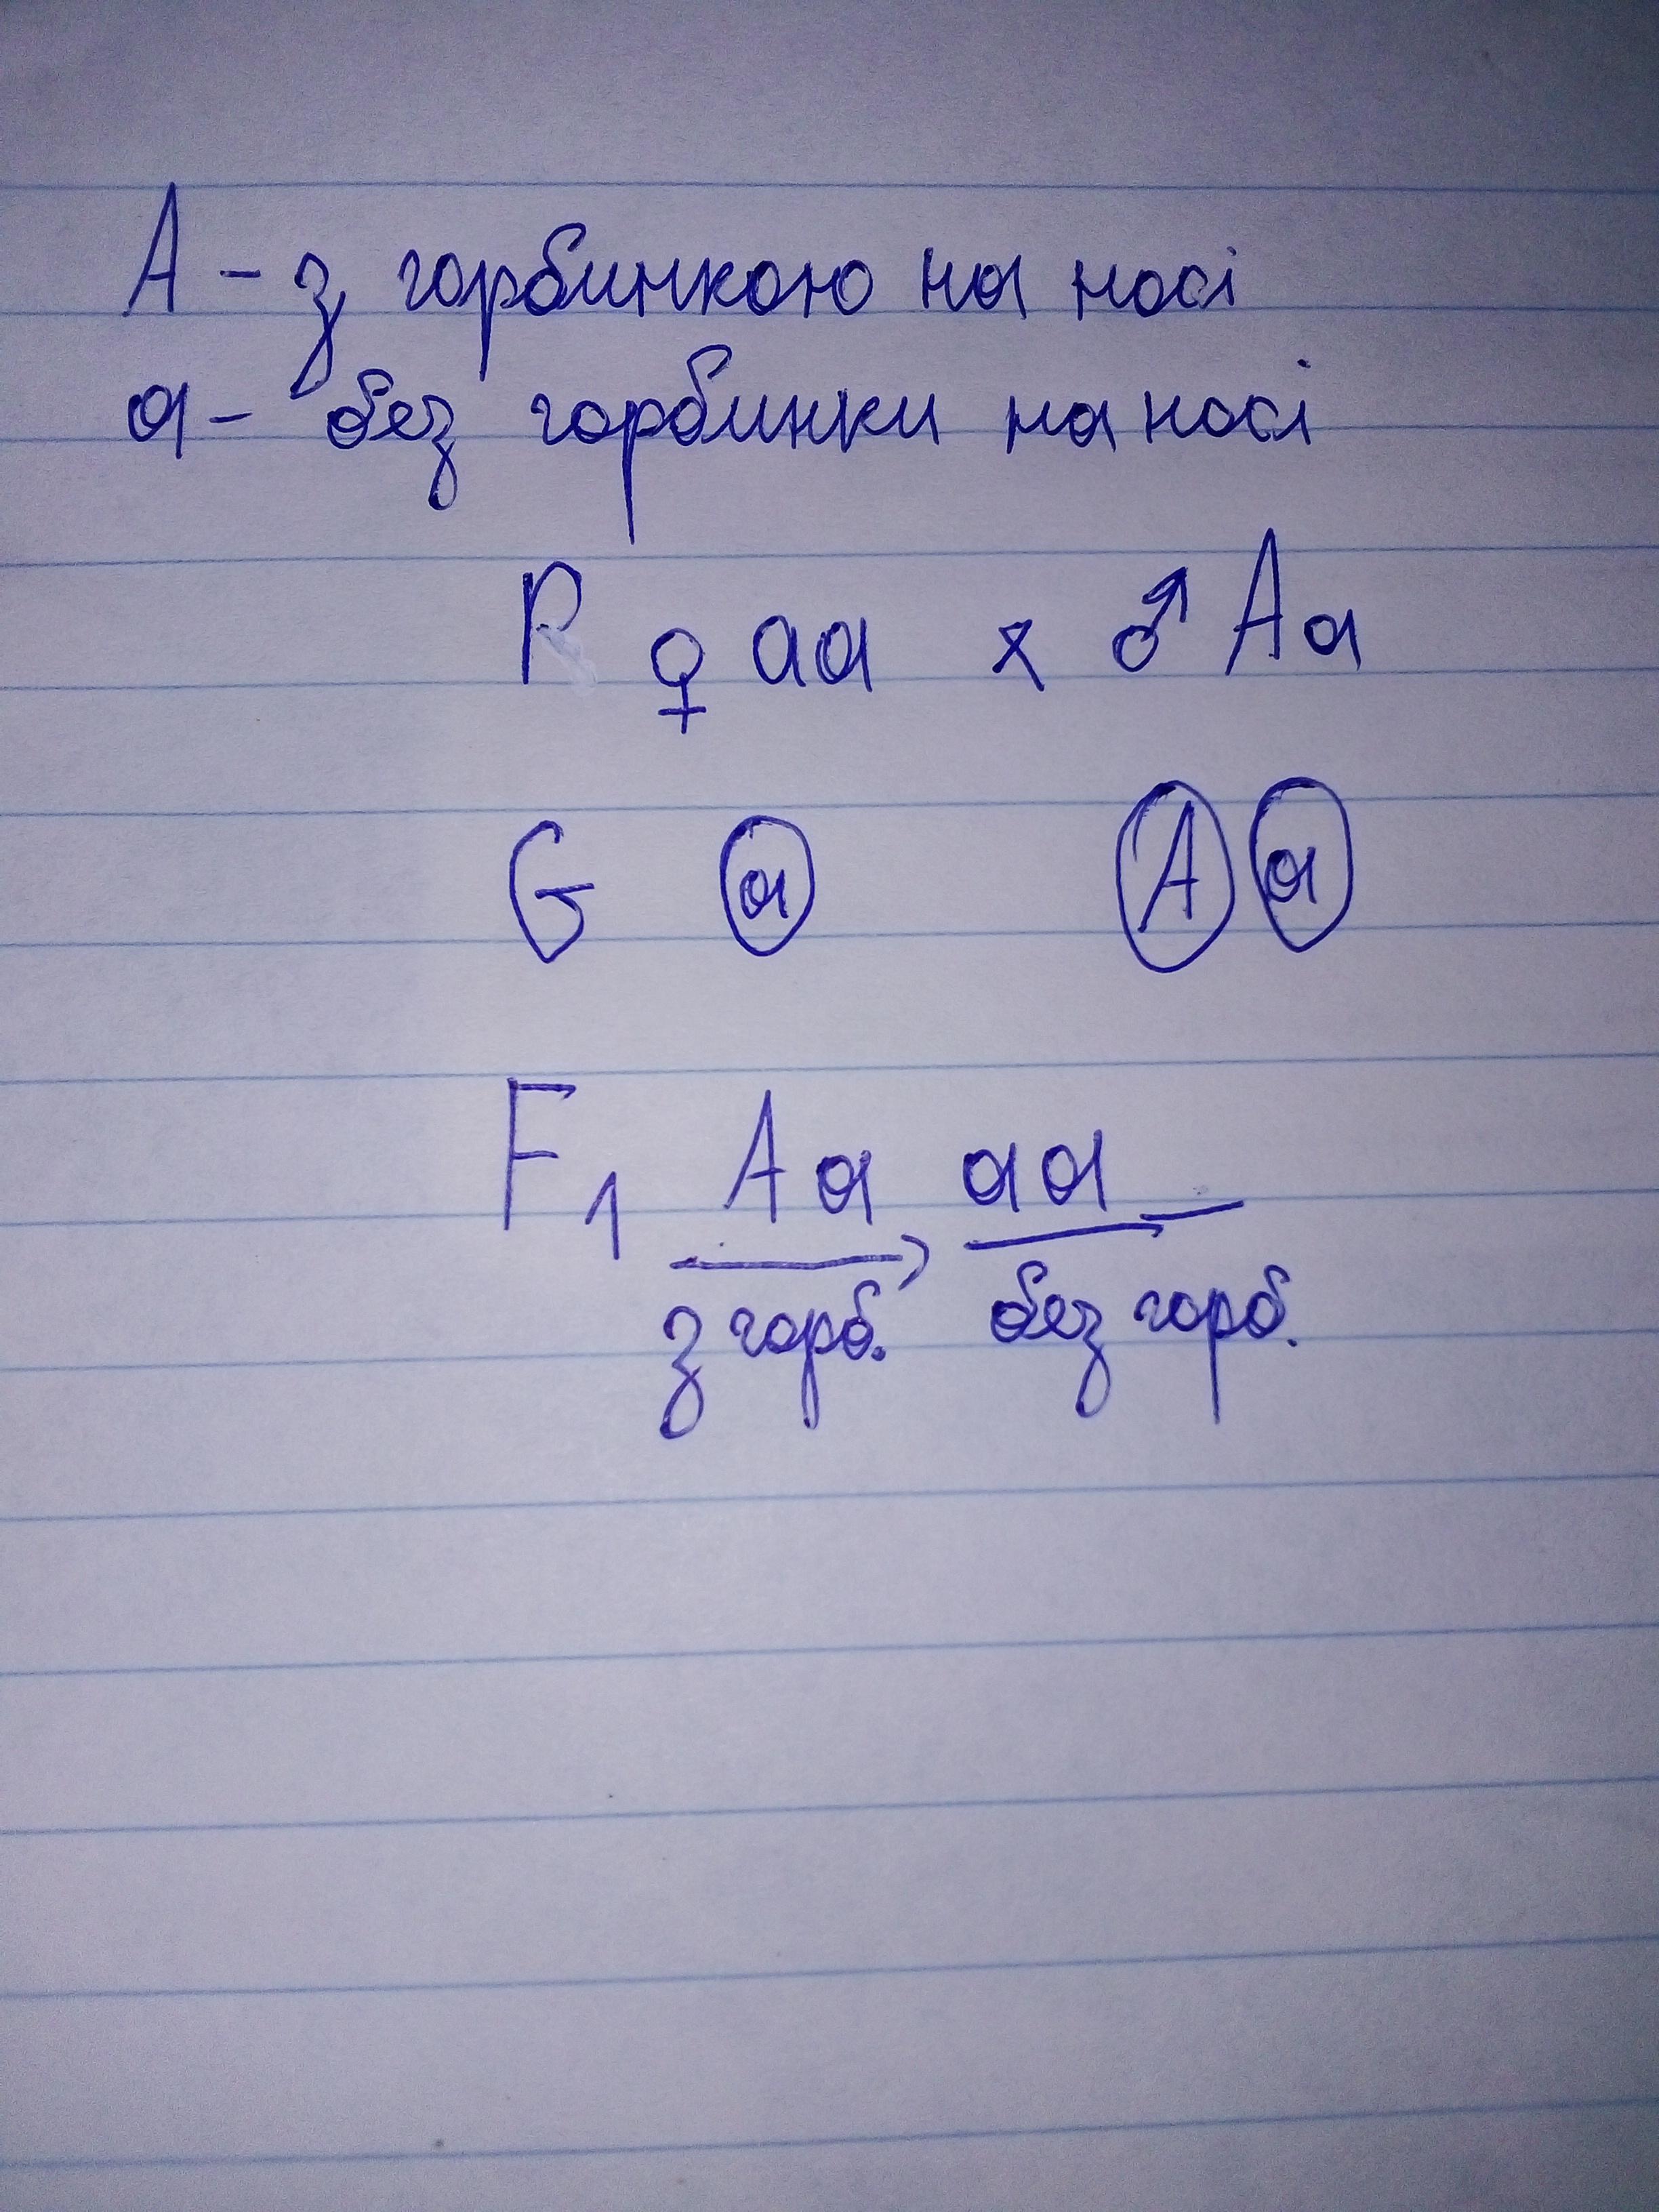 A - з горбинкою на носі
a - без горбинки на носі
P ♀ aa x ♂ Aa
G a A a
F1 Aa, aa
з горб. без горб.